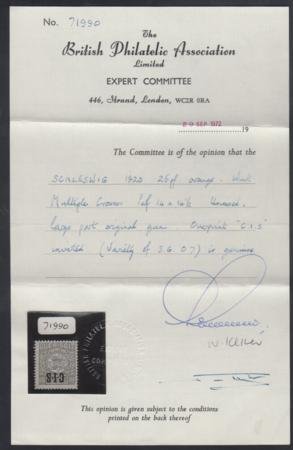 No. 71990
The
British Philatelic Association
Limited
EXPERT COMMITTEE
446, Strand, London, WC2R 0RA
29 SEP 1972 19
The Committee is of the opinion that the
SCHLESWIG 1920 25pf orange. Wmk
Multiple Crosses Perf 14 x 14½ Unused,
large part original gum. Overprint "C.I.S"
inverted (Variety of S.G. O7) is genuine
71990
C·I·S
This opinion is given subject to the conditions
printed on the back thereof